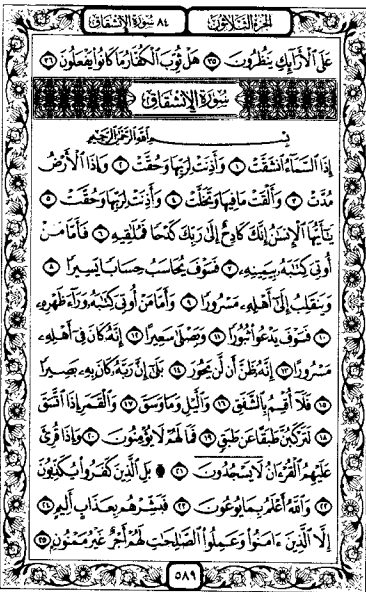 الجزء الثلاثون ٨٤ سورة الإنشقاق
عَلَى ٱلْأَرَآئِكِ يَنظُرُونَ ٣٥ هَلْ ثُوِّبَ ٱلْكُفَّارُ مَا كَانُوا۟ يَفْعَلُونَ ٣٦
سورة الإنشقاق
بِسْمِ ٱللَّهِ ٱلرَّحْمَٰنِ ٱلرَّحِيمِ
إِذَا ٱلسَّمَآءُ ٱنشَقَّتْ ١ وَأَذِنَتْ لِرَبِّهَا وَحُقَّتْ ٢ وَإِذَا ٱلْأَرْضُ
مُدَّتْ ٣ وَأَلْقَتْ مَا فِيهَا وَتَخَلَّتْ ٤ وَأَذِنَتْ لِرَبِّهَا وَحُقَّتْ ٥
يَٰٓأَيُّهَا ٱلْإِنسَٰنُ إِنَّكَ كَادِحٌ إِلَىٰ رَبِّكَ كَدْحًا فَمُلَٰقِيهِ ٦ فَأَمَّا مَنْ
أُوتِىَ كِتَٰبَهُۥ بِيَمِينِهِۦ ٧ فَسَوْفَ يُحَاسَبُ حِسَابًا يَسِيرًا ٨
وَيَنقَلِبُ إِلَىٰٓ أَهْلِهِۦ مَسْرُورًا ٩ وَأَمَّا مَنْ أُوتِىَ كِتَٰبَهُۥ وَرَآءَ ظَهْرِهِۦ
١٠ فَسَوْفَ يَدْعُوا۟ ثُبُورًا ١١ وَيَصْلَىٰ سَعِيرًا ١٢ إِنَّهُۥ كَانَ فِىٓ أَهْلِهِۦ
مَسْرُورًا ١٣ إِنَّهُۥ ظَنَّ أَن لَّن يَحُورَ ١٤ بَلَىٰٓ إِنَّ رَبَّهُۥ كَانَ بِهِۦ بَصِيرًا
١٥ فَلَآ أُقْسِمُ بِٱلشَّفَقِ ١٦ وَٱلَّيْلِ وَمَا وَسَقَ ١٧ وَٱلْقَمَرِ إِذَا ٱتَّسَقَ
١٨ لَتَرْكَبُنَّ طَبَقًا عَن طَبَقٍ ١٩ فَمَا لَهُمْ لَا يُؤْمِنُونَ ٢٠ وَإِذَا قُرِئَ
عَلَيْهِمُ ٱلْقُرْءَانُ لَا يَسْجُدُونَ ۩ ٢١ بَلِ ٱلَّذِينَ كَفَرُوا۟ يُكَذِّبُونَ
٢٢ وَٱللَّهُ أَعْلَمُ بِمَا يُوعُونَ ٢٣ فَبَشِّرْهُم بِعَذَابٍ أَلِيمٍ ٢٤
إِلَّا ٱلَّذِينَ ءَامَنُوا۟ وَعَمِلُوا۟ ٱلصَّٰلِحَٰتِ لَهُمْ أَجْرٌ غَيْرُ مَمْنُونٍۭ ٢٥
٥٨٩